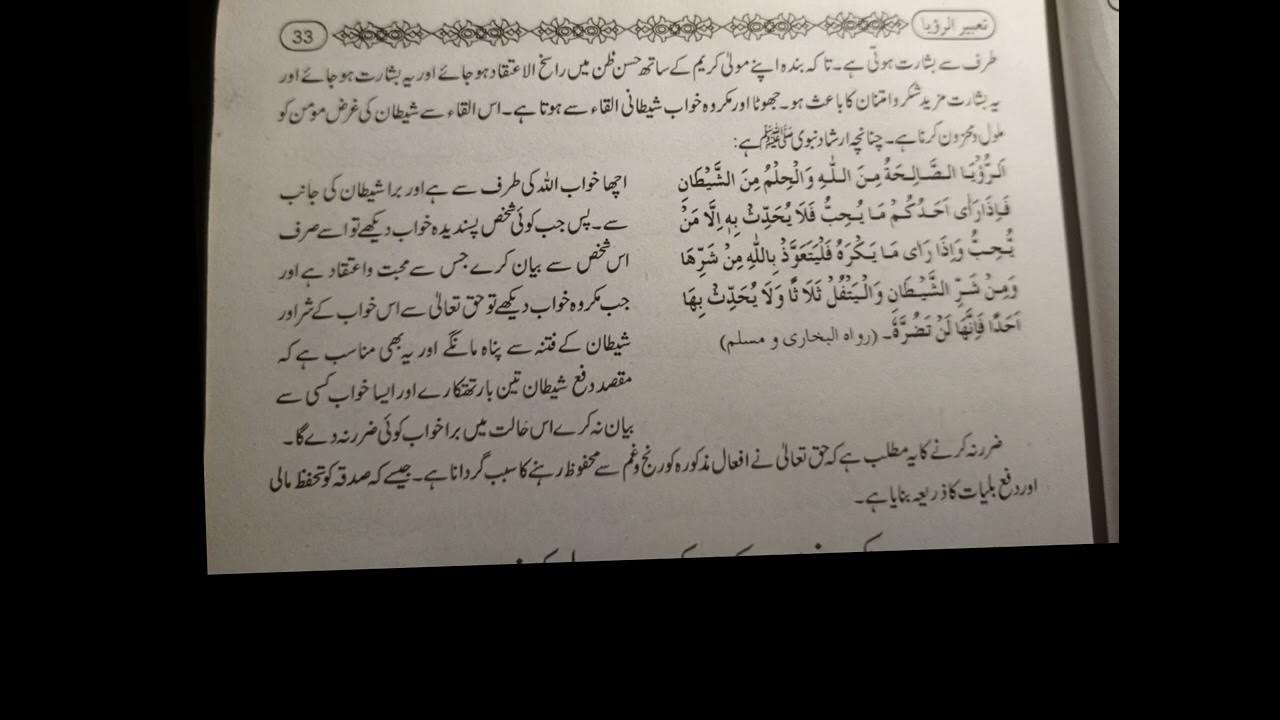 تعبیر الرؤیا
33
طرف سے بشارت ہوتی ہے۔ تاکہ بندہ اپنے مولیٰ کریم کے ساتھ حسن ظن میں راسخ الاعتقاد ہو جائے اور یہ بشارت ہو جائے اور
یہ بشارت مزید شکر و امتنان کا باعث ہو۔ جھوٹا اور مکروہ خواب شیطانی القاء سے ہوتا ہے۔ اس القاء سے شیطان کی غرض مومن کو
ملول و محزون کرنا ہے۔ چنانچہ ارشاد نبوی ﷺ ہے:
اَلرُّؤْیَا الصَّالِحَةُ مِنَ اللّٰهِ وَالْحِلْمُ مِنَ الشَّیْطَانِ
فَاِذَا رَاٰی اَحَدُکُمْ مَا یُحِبُّ فَلَا یُحَدِّثْ بِهٖ اِلَّا مَنْ
یُّحِبُّ وَاِذَا رَاٰی مَا یَکْرَهُ فَلْیَتَعَوَّذْ بِاللّٰهِ مِنْ شَرِّهَا
وَمِنْ شَرِّ الشَّیْطَانِ وَالْیَتْفُلْ ثَلَاثًا وَلَا یُحَدِّثْ بِهَا
اَحَدًا فَاِنَّهَا لَنْ تَضُرَّهٗ۔ (رواہ البخاری و مسلم)
اچھا خواب اللہ کی طرف سے ہے اور برا شیطان کی جانب
سے۔ پس جب کوئی شخص پسندیدہ خواب دیکھے تو اسے صرف
اس شخص سے بیان کرے جس سے محبت و اعتقاد ہے اور
جب مکروہ خواب دیکھے تو حق تعالیٰ سے اس خواب کے شر اور
شیطان کے فتنہ سے پناہ مانگے اور یہ بھی مناسب ہے کہ
مقصد دفع شیطان تین بار تھتکارے اور ایسا خواب کسی سے
بیان نہ کرے اس حالت میں برا خواب کوئی ضرر نہ دے گا۔
ضرر نہ کرنے کا یہ مطلب ہے کہ حق تعالیٰ نے افعال مذکورہ کو رنج و غم سے محفوظ رہنے کا سبب گردانا ہے۔ جیسے کہ صدقہ کو تحفظ مالی
اور دفع بلیات کا ذریعہ بنایا ہے۔